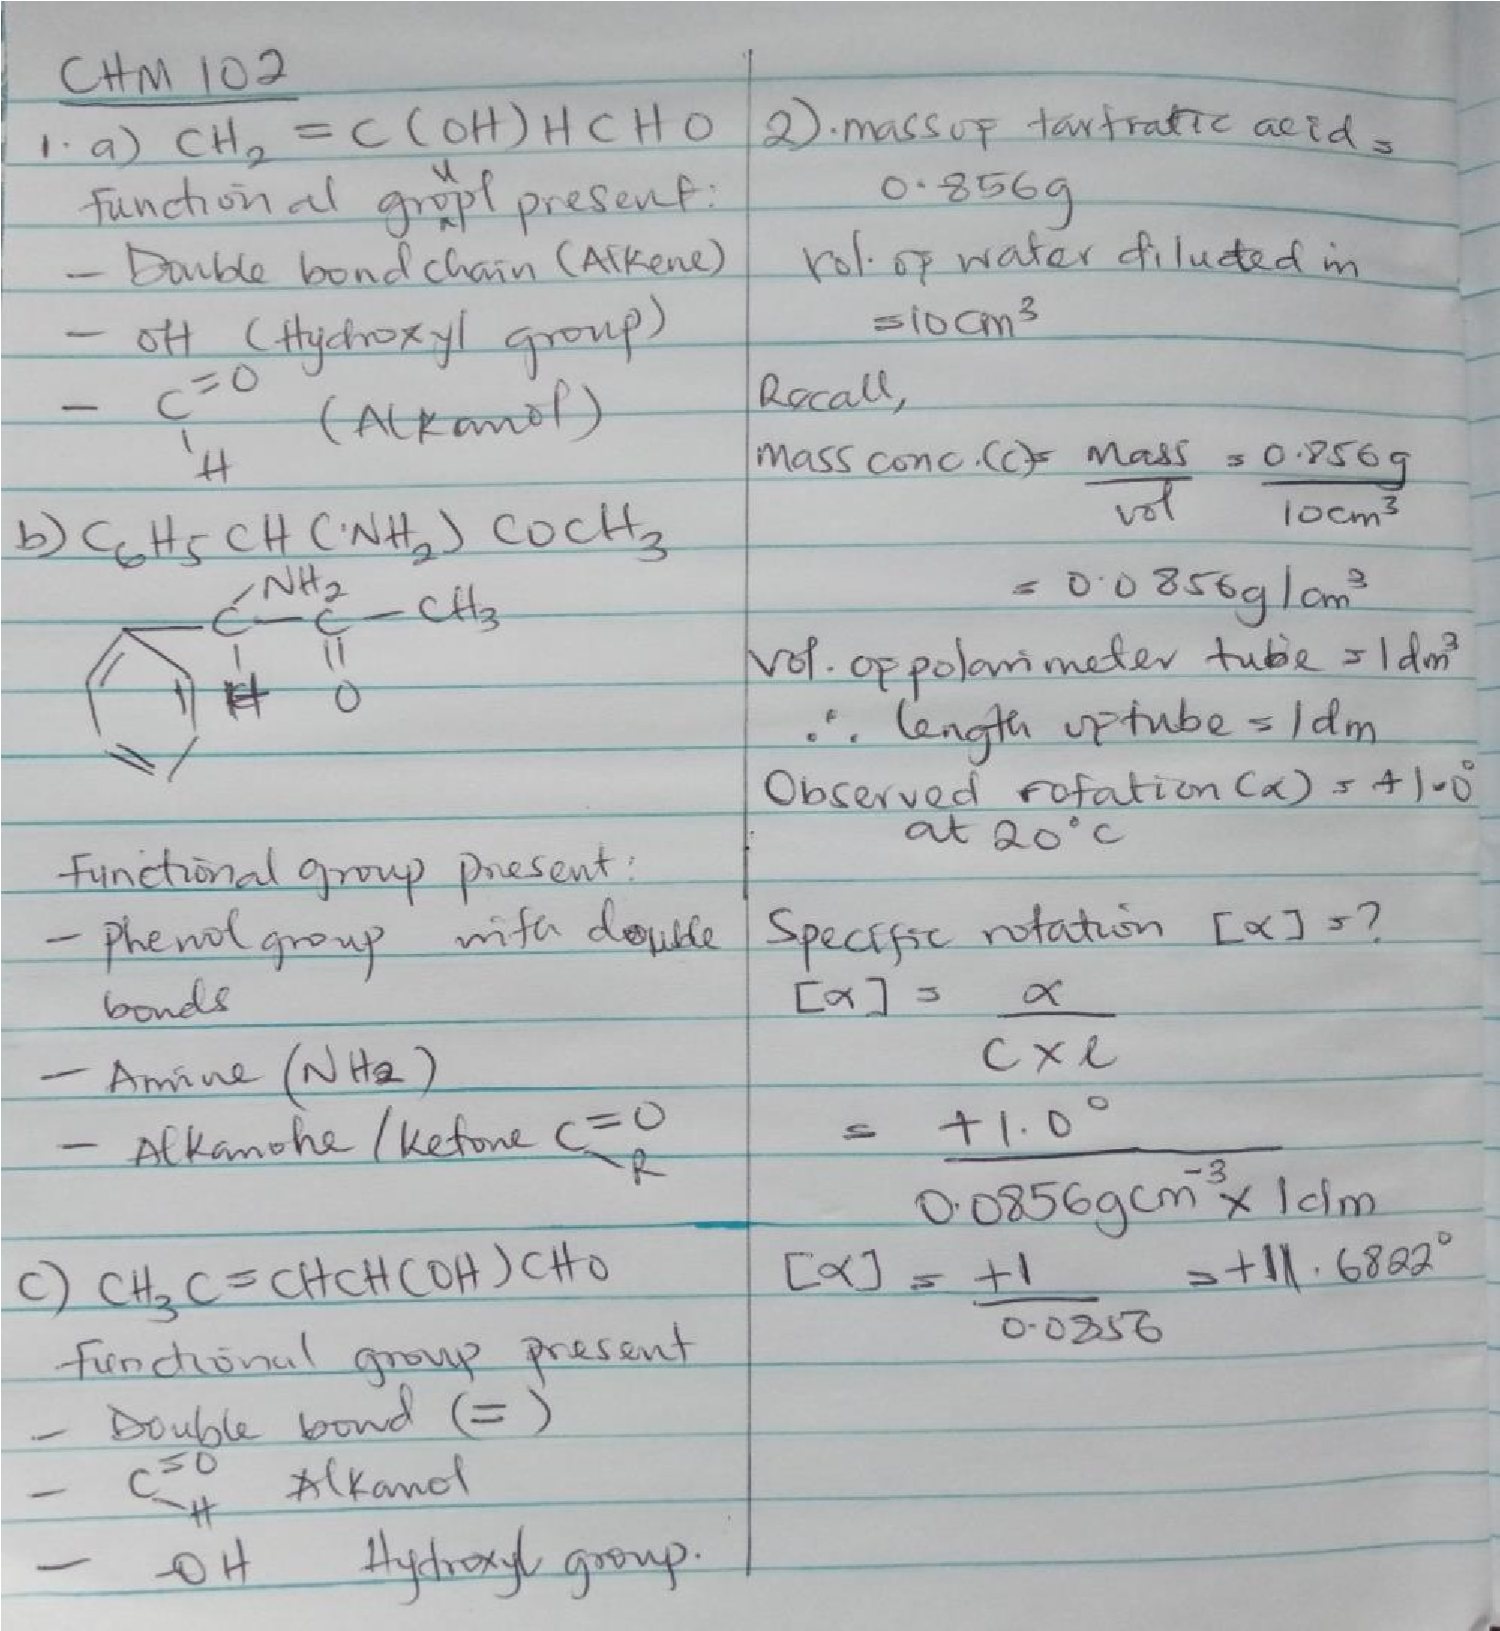 CHM 102
1. a) CH₂ = C(OH)HCHO
functional group present:
- Double bond chain (Alkene)
- OH (Hydroxyl group)
- C=O (Alkanol)
H
b) C₆H₅CH(NH₂)COCH₃
NH₂
C - C - CH₃
H O
Functional group present:
- Phenol group with double
bonds
- Amine (NH₂)
- Alkanone / Ketone C=O
R
c) CH₃C=CHCH(OH)CHO
Functional group present
- Double bond (=)
- C=O Alkanol
H
- OH Hydroxyl group.
2). mass of tartratic acid =
0.856g
Vol. of water diluted in
= 10cm³
Recall,
mass conc.(c) = Mass = 0.856g
vol 10cm³
= 0.0856g/cm³
Vol. of polarimeter tube = 1dm³
∴ length of tube = 1dm
Observed rotation (α) = +1.0°
at 20°c
Specific rotation [α] = ?
[α] = α
C x l
= +1.0°
0.0856gcm⁻³ x 1dm
[α] = +1 = +11.6822°
0.0856